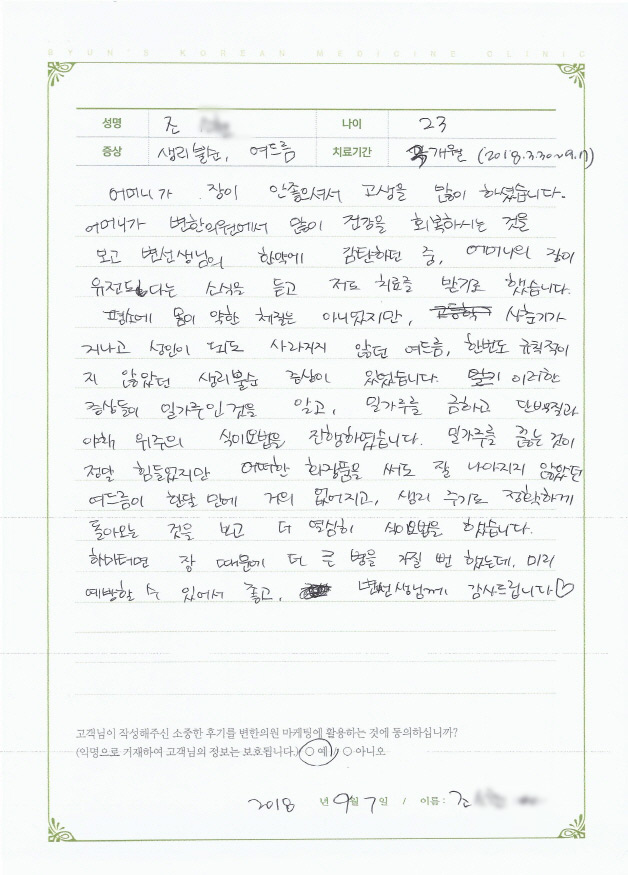 BYUN'S KOREAN MEDICINE CLINIC
성명 조 나이 23
증상 생리불순, 여드름 치료기간 개월 (2018.3.30~9.7)
어머니가 장이 안좋으셔서 고생을 많이 하셨습니다.
어머니가 변한의원에서 많이 건강을 회복하시는 것을
보고 변선생님의 한약에 감탄하던 중, 어머니의 장이
유전된다는 소식을 듣고 저도 치료를 받기로 했습니다.
평소에 몸이 약한 체질은 아니었지만, 사춘기가
지나고 성인이 되도 사라지지 않던 여드름, 한번도 규칙적이
지 않았던 생리불순 증상이 있었습니다. 이러한
증상들이 밀가루인것을 알고, 밀가루를 금하고 단백질과
야채 위주의 식이요법을 진행하였습니다. 밀가루를 끊는 것이
정말 힘들었지만 어떠한 화장품을 써도 잘 나아지지 않았던
여드름이 한달 만에 거의 없어지고, 생리 주기도 정확하게
돌아오는 것을 보고 더 열심히 식이요법을 했습니다.
하마터면 장 때문에 더 큰 병을 가질 뻔 했는데, 미리
예방할 수 있어서 좋고, 변선생님께 감사드립니다♡
고객님이 작성해주신 소중한 후기를 변한의원 마케팅에 활용하는 것에 동의하십니까?
(익명으로 기재하여 고객님의 정보는 보호됩니다.) ○ 예 / ○ 아니오
2018 년 9월 7일 / 이름 : 조